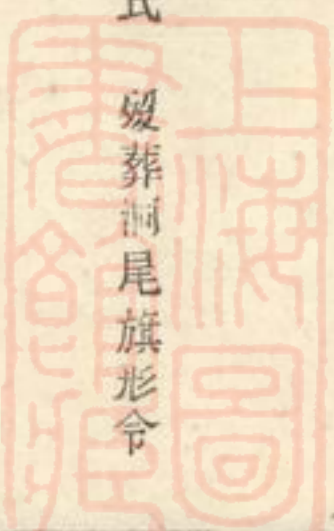 氏 歿葬洞尾旗形令
上海圖
書館藏